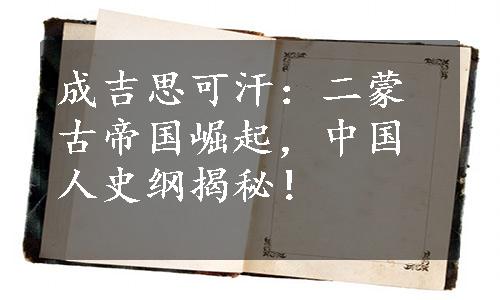 成吉思可汗：二蒙
古帝国崛起，中国
人史纲揭秘！